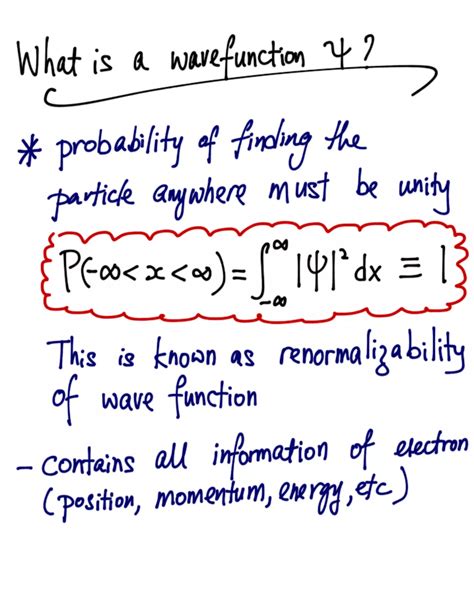 What is a wavefunction ψ?
* probability of finding the
particle anywhere must be unity
P(-∞<x<∞) = ∫_{-∞}^{∞} |ψ|² dx ≡ 1
This is known as renormalizability
of wave function
- contains all information of electron
(position, momentum, energy, etc)